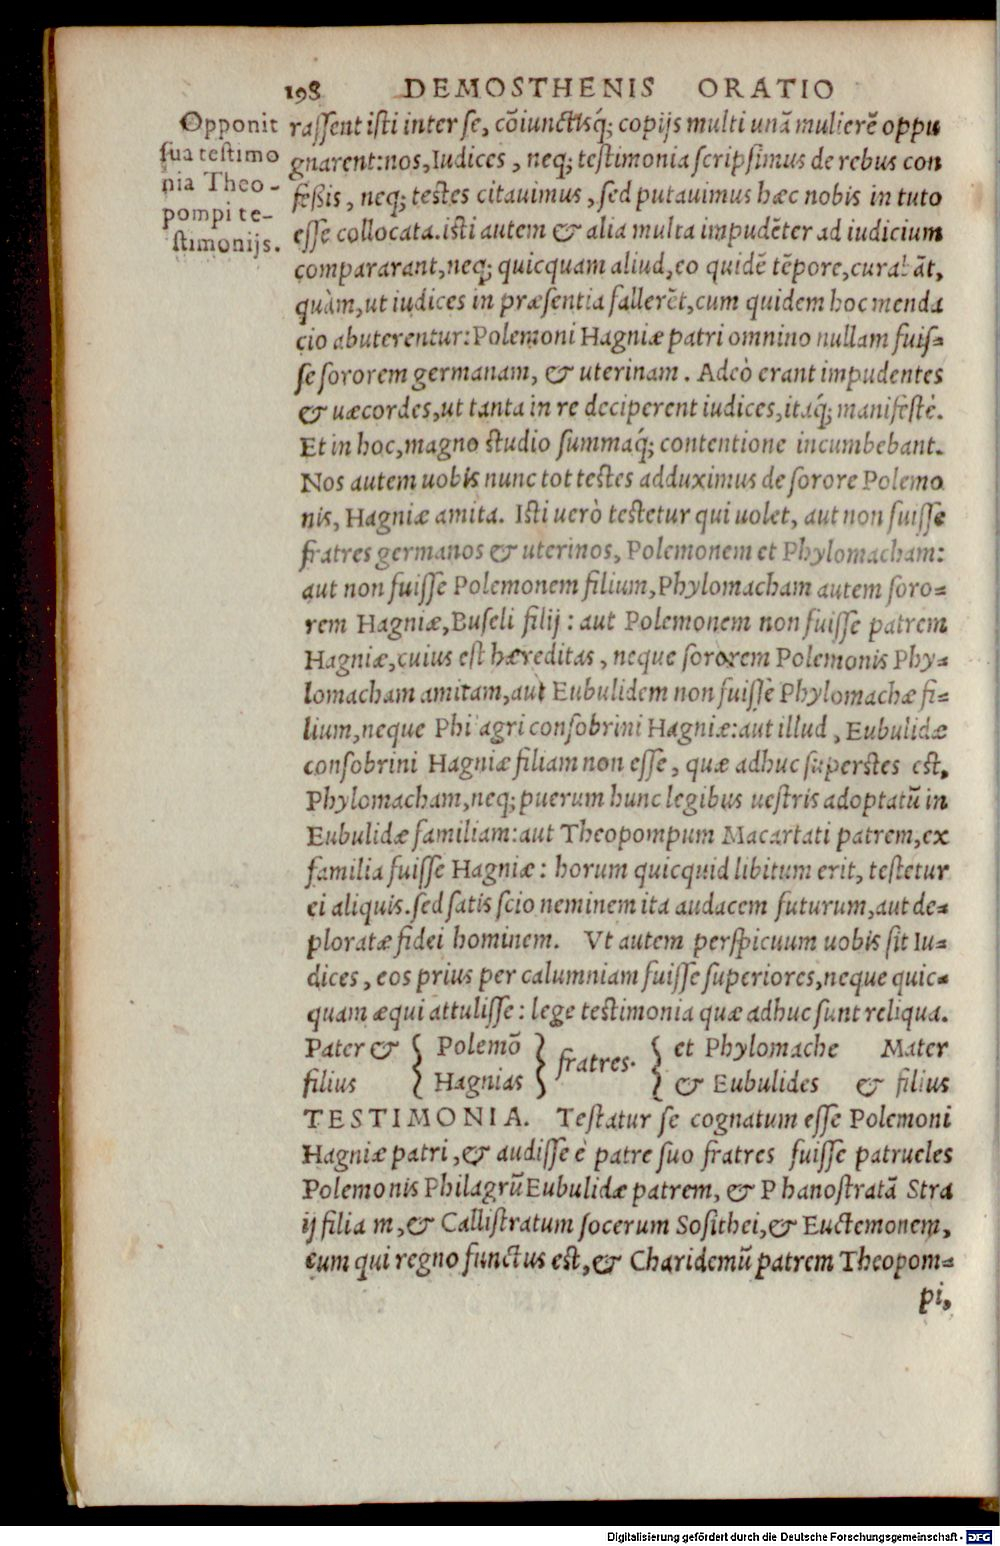 198 DEMOSTHENIS ORATIO
Opponit
sua testimo
nia Theo-
pompi te-
stimonijs.
rassent isti inter se, cōiunctisq́; copijs multi unā mulierē oppu
gnarent: nos, Iudices, neq; testimonia scripsimus de rebus con
feßis, neq; testes citavimus, sed putavimus hæc nobis in tuto
esse collocata. isti autem & alia multa impudēter ad iudicium
compararant, neq; quicquam aliud, eo quidē tēpore, curabāt,
quàm, ut iudices in præsentia fallerēt, cum quidem hoc menda
cio abuterentur: Polemoni Hagniæ patri omnino nullam fuis-
se sororem germanam, & uterinam. Adeò erant impudentes
& uæcordes, ut tanta in re deciperent iudices, itaq́; manifestè.
Et in hoc, magno studio summaq́; contentione incumbebant.
Nos autem uobis nunc tot testes adduximus de sorore Polemo
nis, Hagniæ amita. Isti uerò testetur qui uolet, aut non fuisse
fratres germanos & uterinos, Polemonem et Phylomacham:
aut non fuisse Polemonem filium, Phylomacham autem soro-
rem Hagniæ, Buseli filij: aut Polemonem non fuisse patrem
Hagniæ, cuius est hæreditas, neque sororem Polemonis Phy-
lomacham amitam, aut Eubulidem non fuissè Phylomachæ fi-
lium, neque Phi agri consobrini Hagniæ: aut illud, Eubulidæ
consobrini Hagniæ filiam non esse, quæ adhuc superstes est,
Phylomacham, neq; puerum hunc legibus uestris adoptatū in
Eubulidæ familiam: aut Theopompum Macartati patrem, ex
familia fuisse Hagniæ: horum quicquid libitum erit, testetur
ei aliquis. sed satis scio neminem ita audacem futurum, aut de-
ploratæ fidei hominem. Vt autem perspicuum uobis sit Iu-
dices, eos prius per calumniam fuisse superiores, neque quic-
quam æqui attulisse: lege testimonia quæ adhuc sunt reliqua.
Pater & { Polemō } fratres. { et Phylomache Mater
filius { Hagnias } { & Eubulides & filius
TESTIMONIA. Testatur se cognatum esse Polemoni
Hagniæ patri, & audisse è patre suo fratres fuisse patrueles
Polemonis Philagrū Eubulidæ patrem, & Phanostratā Stra
ij filia m, & Callistratum socerum Sosithei, & Euctemonem,
eum qui regno functus est, & Charidemū patrem Theopom-
pi,
Digitalisierung gefördert durch die Deutsche Forschungsgemeinschaft - DFG